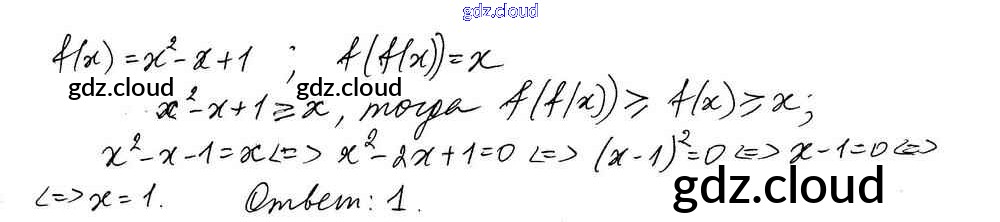 gdz.cloud
f(x) = x² - x + 1 ; f(f(x)) = x
gdz.cloud gdz.cloud
x² - x + 1 ≥ x, тогда f(f(x)) ≥ f(x) ≥ x;
x² - x - 1 = x <=> x² - 2x + 1 = 0 <=> (x - 1)² = 0 <=> x - 1 = 0 <=>
<=> x = 1. Ответ: 1.
gdz.cloud